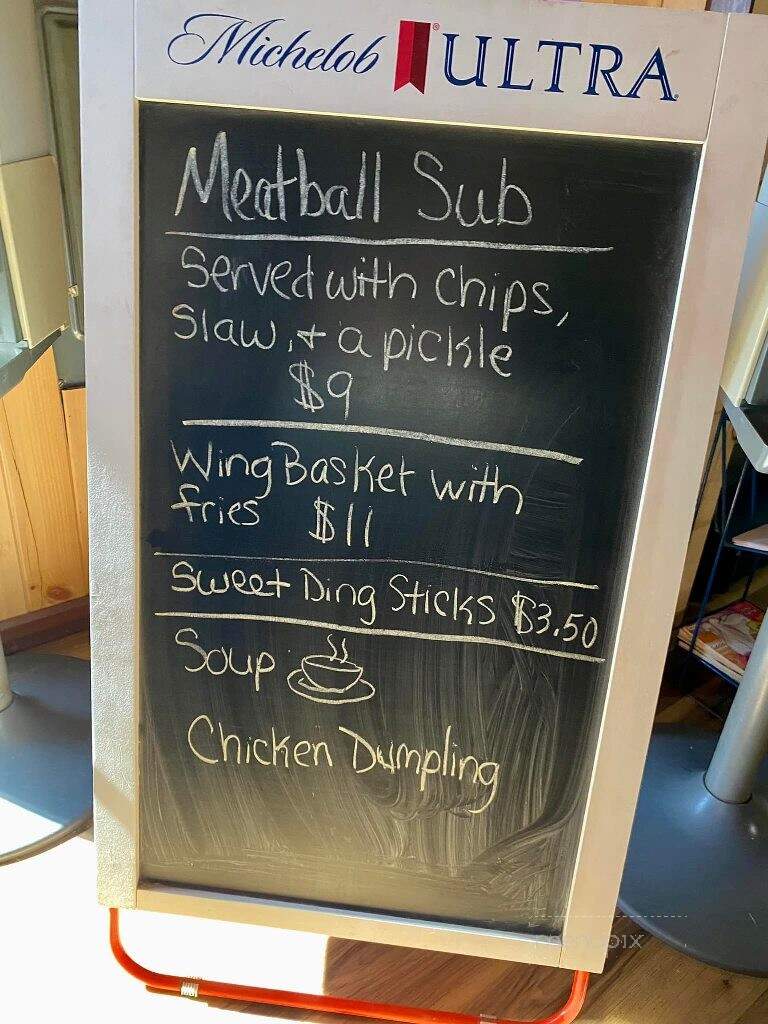 Michelob ULTRA
Meatball Sub
Served with chips,
Slaw, + a pickle
$9
Wing Basket with
fries $11
Sweet Ding Sticks $3.50
Soup
Chicken Dumpling